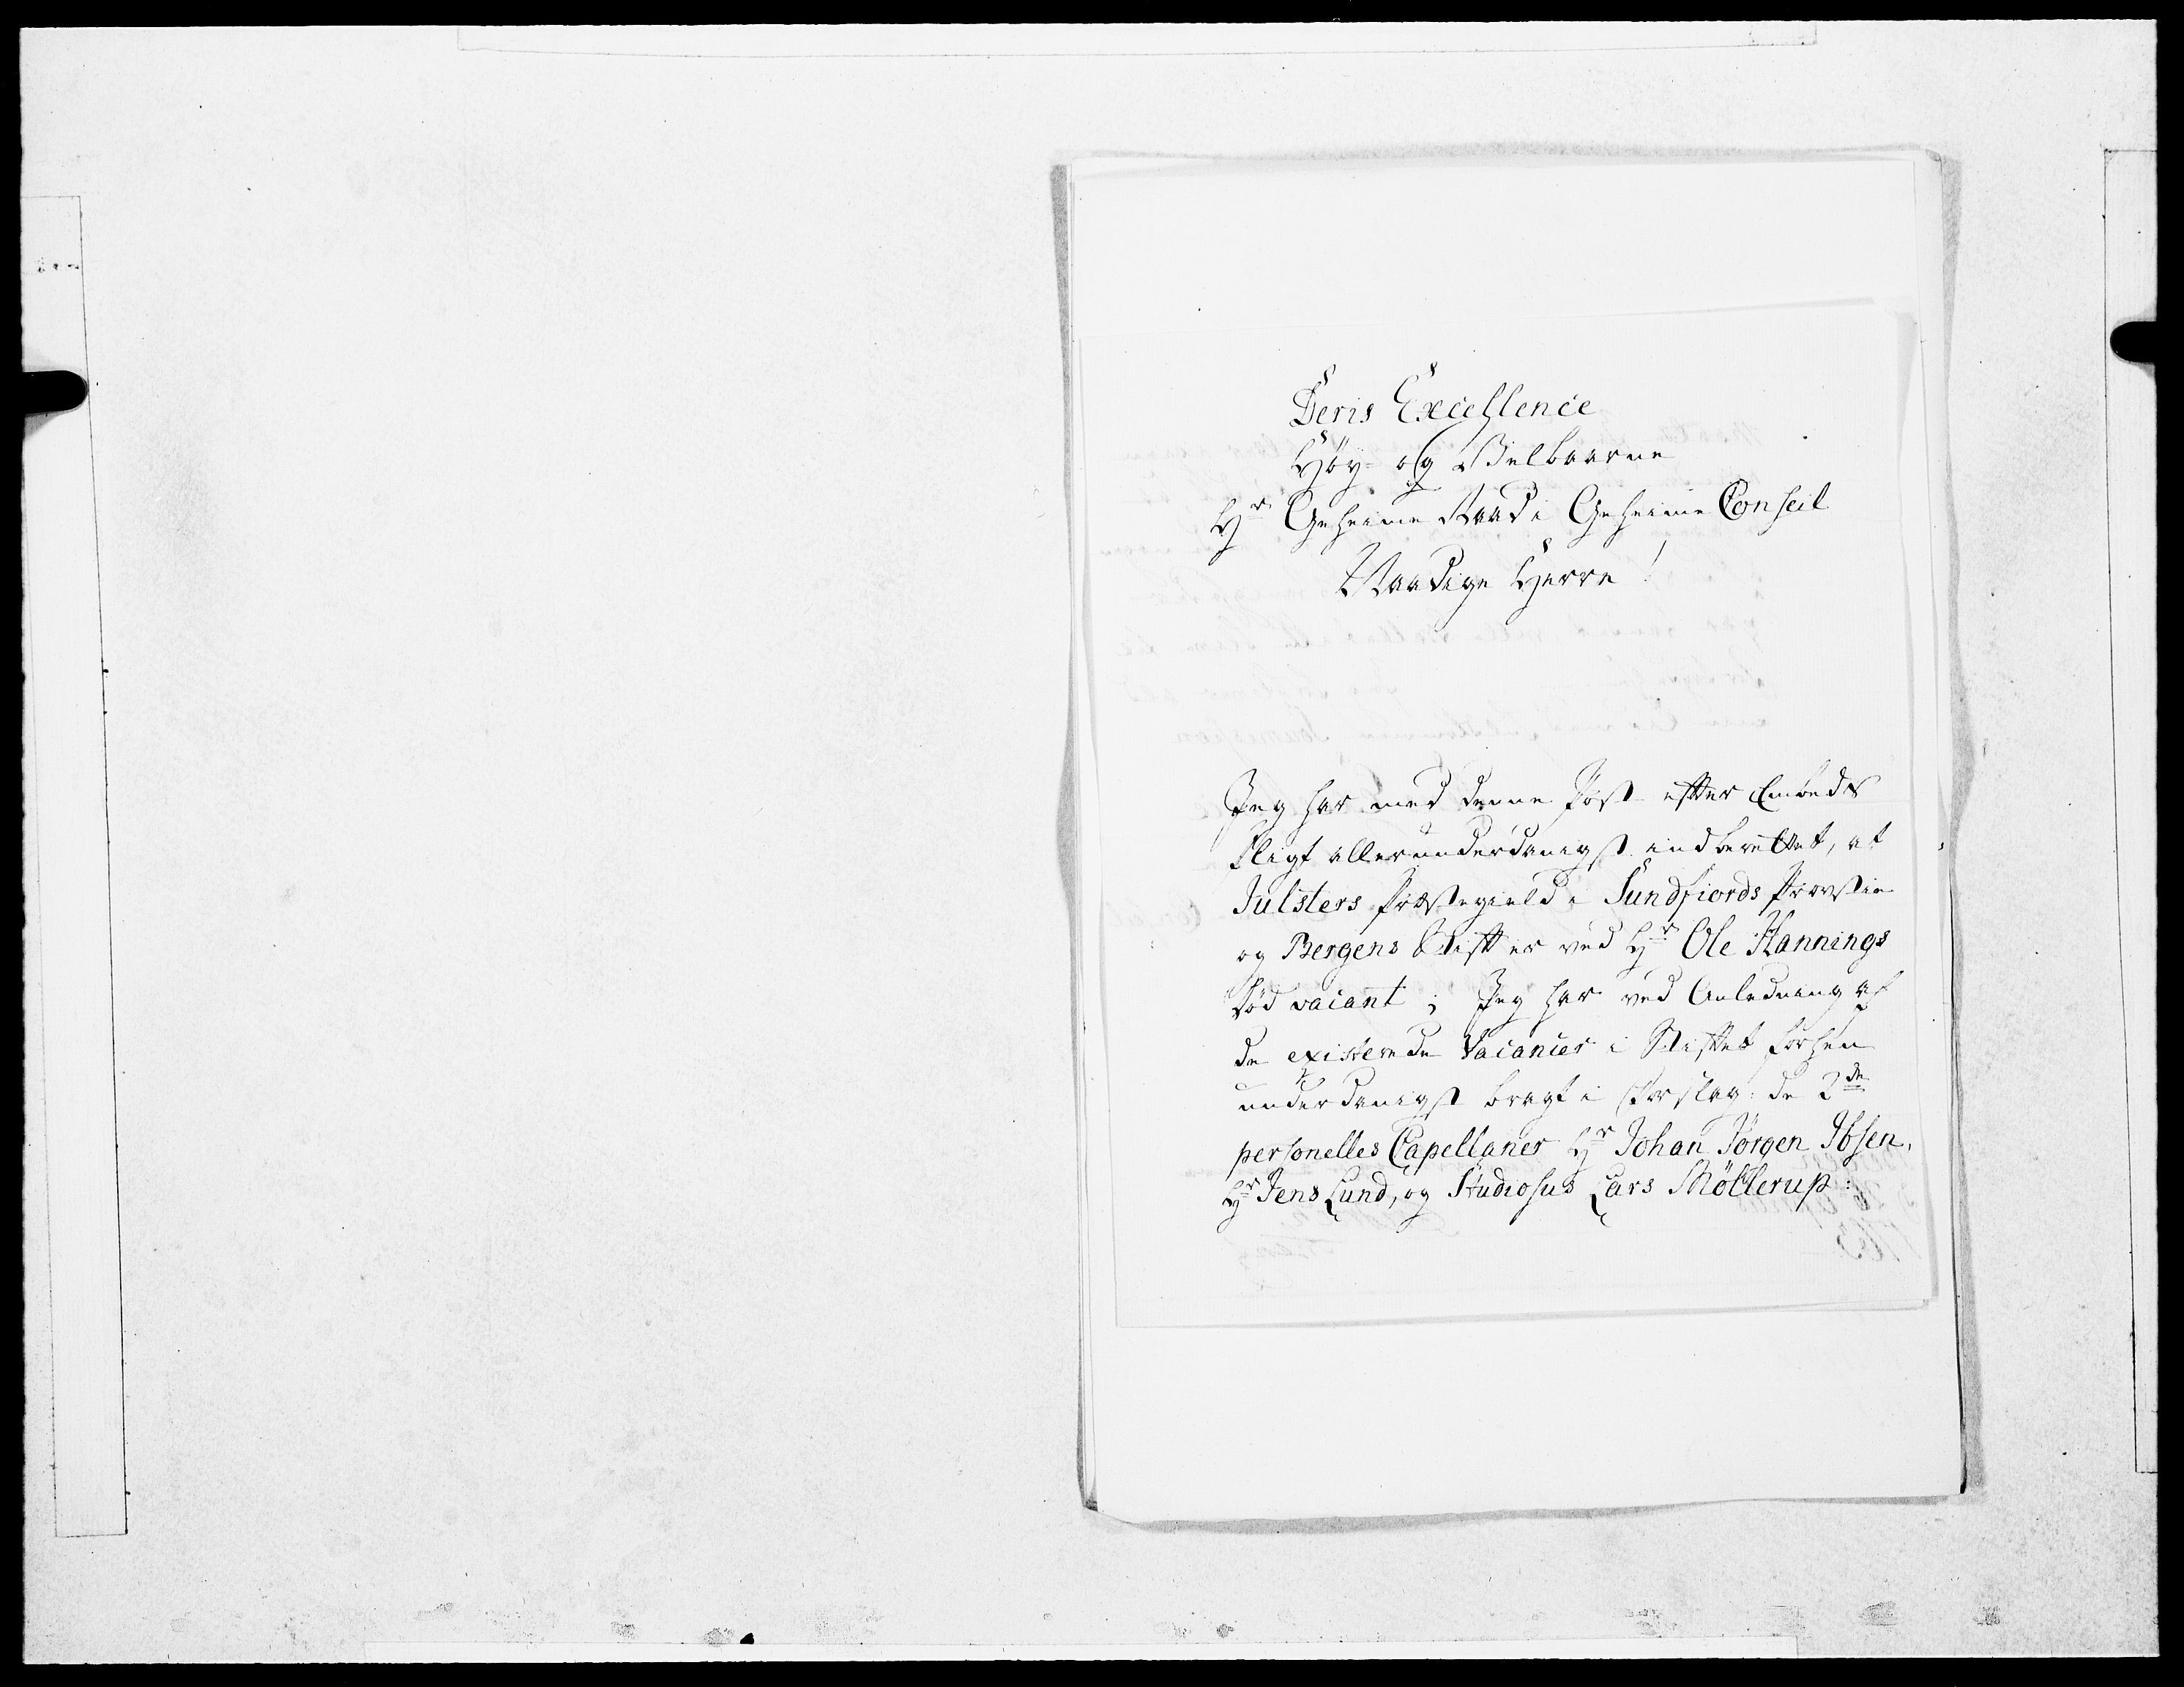 Deris Excellence
Høy- og Velbaarne
Hr Geheime Raad i Geheime Conseil
Naadige Herre!
Jeg har med denne Post efter Embeds
Pligt allerunderdanigst indberettet, at
Julsters Præstegield i Sundfiords Provstie
og Bergens Stift er ved Hr Ole Hannings
Död vacant; Jeg har ved Anledning af
de existerede Vacancer i Stiftet forhen
underdanigst bragt i Forslag: de 2de
personelles Capellaner Hr Johan Jörgen Ibsen,
Hr Jens Lund, og Studiosus Lars Möllerup: